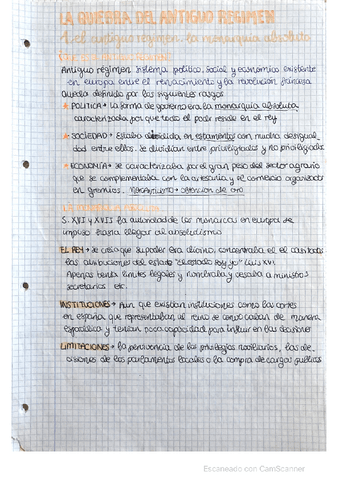 LA QUIEBRA DEL ANTIGUO REGIMEN
1. el antiguo regimen: la monarquia absoluta
Antiguo régimen: sistema politico, social y economico existente
en europa entre el renacimiento y la revolución francesa
Queda definido por los siguientes rasgos
* POLITICA → la forma de gobierno era la monarquía absoluta,
caracterizada por que todo el poder reside en el rey
* SOCIEDAD → Estaba dividida en estamentos con mucha desigual
dad entre ellos. se dividian entre privilegiados y no privilegiados
* ECONOMÍA → se caracterizaba por el gran peso del sector agrario
que se complementaba con la artesania y el comercio organizado
en gremios. Mercantilismo → obtencion de oro
S. XVI y XVII la autoridad de los monarcas en europa se
impuso hasta llegar al absolutismo
EL REY → se creia que su poder era divino, concentraba el
las atribuciones del estado "el estado soy yo" Luis XVI.
Apenas tenia limites legales y nombraba y cesaba a ministros
secretarios etc.
INSTITUCIONES → Aun que existian instituciones como las cortes
en españa que representaban al reino se convocaban de manera
esporádica y tenian poca capacidad para influir en las decisiones
LIMITACIONES → la pervivencia de los privilegios nobiliarios, las de
cisiones de los parlamentos locales o la compra de cargos publicos
Escaneado con CamScanner